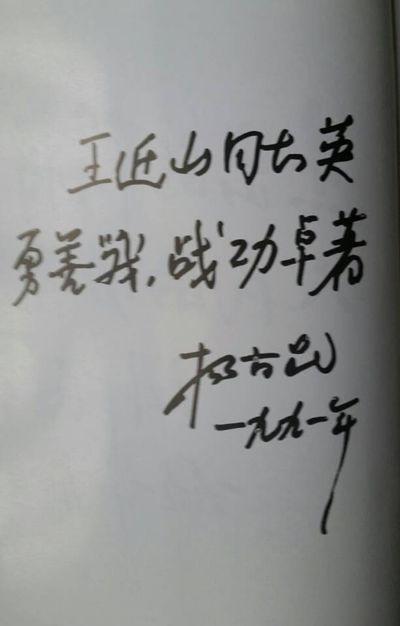 王近山同志英
勇善战,战功卓著
杨尚昆
一九九一年